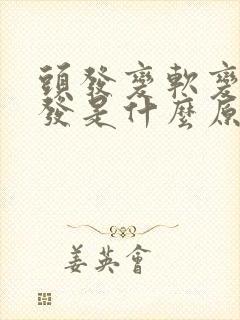 頭發變軟變
發是什麼原
姜英會